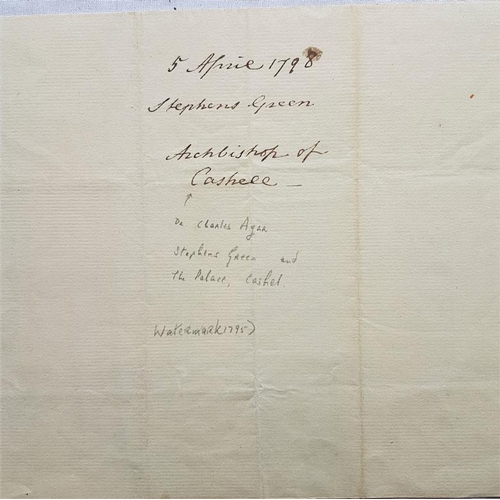 5 April 1798
Stephens Green
Archbishop of
Cashell —
Dr Charles Agar
Stephens Green and
The Palace, Cashel.
Watermark 1795)